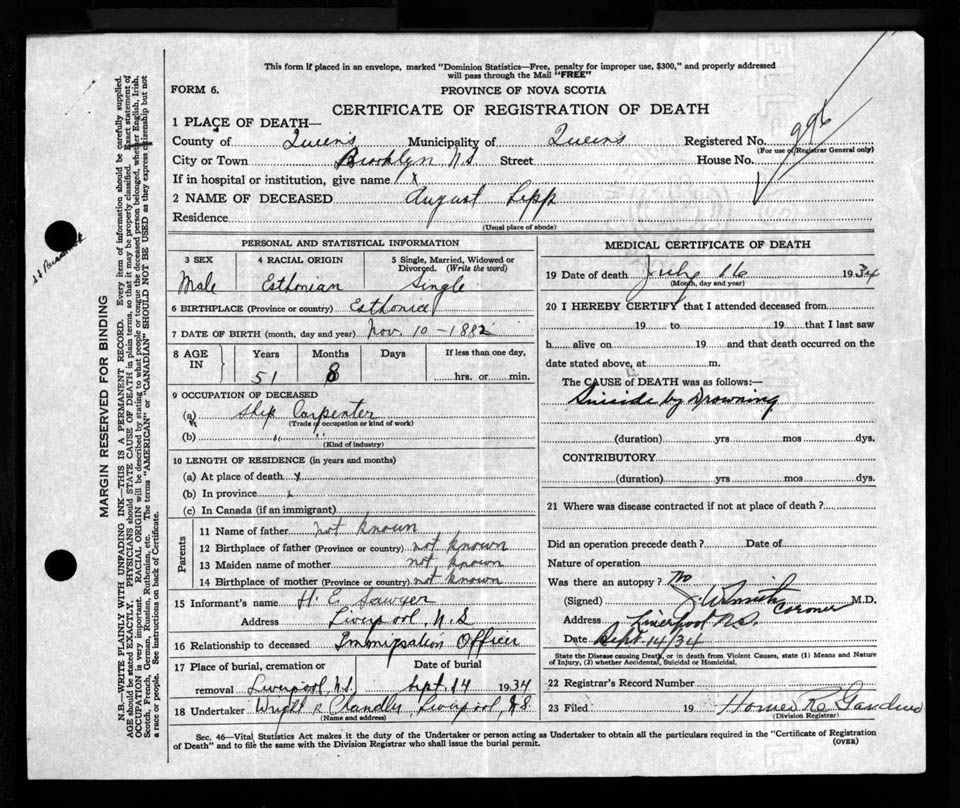 This form if placed in an envelope, marked "Dominion Statistics—Free, penalty for improper use, $300," and properly addressed
will pass through the Mail "FREE"
FORM 6.
PROVINCE OF NOVA SCOTIA
CERTIFICATE OF REGISTRATION OF DEATH
1 PLACE OF DEATH—
County of Queens Municipality of Queens Registered No. 996
(For use of Registrar General only)
City or Town Brooklyn N.S. Street House No.
If in hospital or institution, give name x
2 NAME OF DECEASED August Lipp
Residence
(Usual place of abode)
PERSONAL AND STATISTICAL INFORMATION
3 SEX 4 RACIAL ORIGIN 5 Single, Married, Widowed or Divorced. (Write the word)
Male Esthonian Single
6 BIRTHPLACE (Province or country) Esthonia
7 DATE OF BIRTH (month, day and year) Nov. 10 - 1882
8 AGE IN Years Months Days If less than one day,
51 8 hrs. or min.
9 OCCUPATION OF DECEASED
(a) Ship Carpenter
(Trade, occupation or kind of work)
(b) " "
(Kind of industry)
10 LENGTH OF RESIDENCE (in years and months)
(a) At place of death x
(b) In province x
(c) In Canada (if an immigrant)
Parents
11 Name of father not known
12 Birthplace of father (Province or country) not known
13 Maiden name of mother not known
14 Birthplace of mother (Province or country) not known
15 Informant's name H. E. Sawyer
Address Liverpool, N.S
16 Relationship to deceased Immigration Officer
17 Place of burial, cremation or Date of burial
removal Liverpool, N.S. Sept. 14 1934
18 Undertaker Wright & Chandler, Liverpool, N.S
(Name and address)
MEDICAL CERTIFICATE OF DEATH
19 Date of death July 16 1934
(Month, day and year)
20 I HEREBY CERTIFY that I attended deceased from
19 to 19 that I last saw
h alive on 19 and that death occurred on the
date stated above, at m.
The CAUSE of DEATH was as follows:—
Suicide by Drowning
(duration) yrs mos dys.
CONTRIBUTORY
(duration) yrs mos dys.
21 Where was disease contracted if not at place of death?
Did an operation precede death? Date of
Nature of operation
Was there an autopsy? No
(Signed) J. W. Smith Coroner M.D.
Address Liverpool N.S.
Date Sept 14/34
State the Disease causing Death, or in death from Violent Causes, state (1) Means and Nature
of Injury, (2) whether Accidental, Suicidal or Homicidal.
22 Registrar's Record Number
23 Filed 19 Homer R.
(Division Registrar)
Sec. 46—Vital Statistics Act makes it the duty of the Undertaker or person acting as Undertaker to obtain all the particulars required in the "Certificate of Registration
of Death" and to file the same with the Division Registrar who shall issue the burial permit.
(OVER)
MARGIN RESERVED FOR BINDING
N.B.—WRITE PLAINLY WITH UNFADING INK—THIS IS A PERMANENT RECORD. Every item of information should be carefully supplied.
AGE should be stated EXACTLY. PHYSICIANS should STATE CAUSE OF DEATH in plain terms, so that it may be properly classified. Exact statement of
OCCUPATION is very important. RACIAL ORIGIN will be described by stating to what people or tongue the deceased person belonged, whether English, Irish,
Scotch, French, German, Russian, Ruthenian, etc. The terms "AMERICAN" or "CANADIAN" SHOULD NOT BE USED as they express citizenship but not
a race or people. See instructions on back of Certificate.